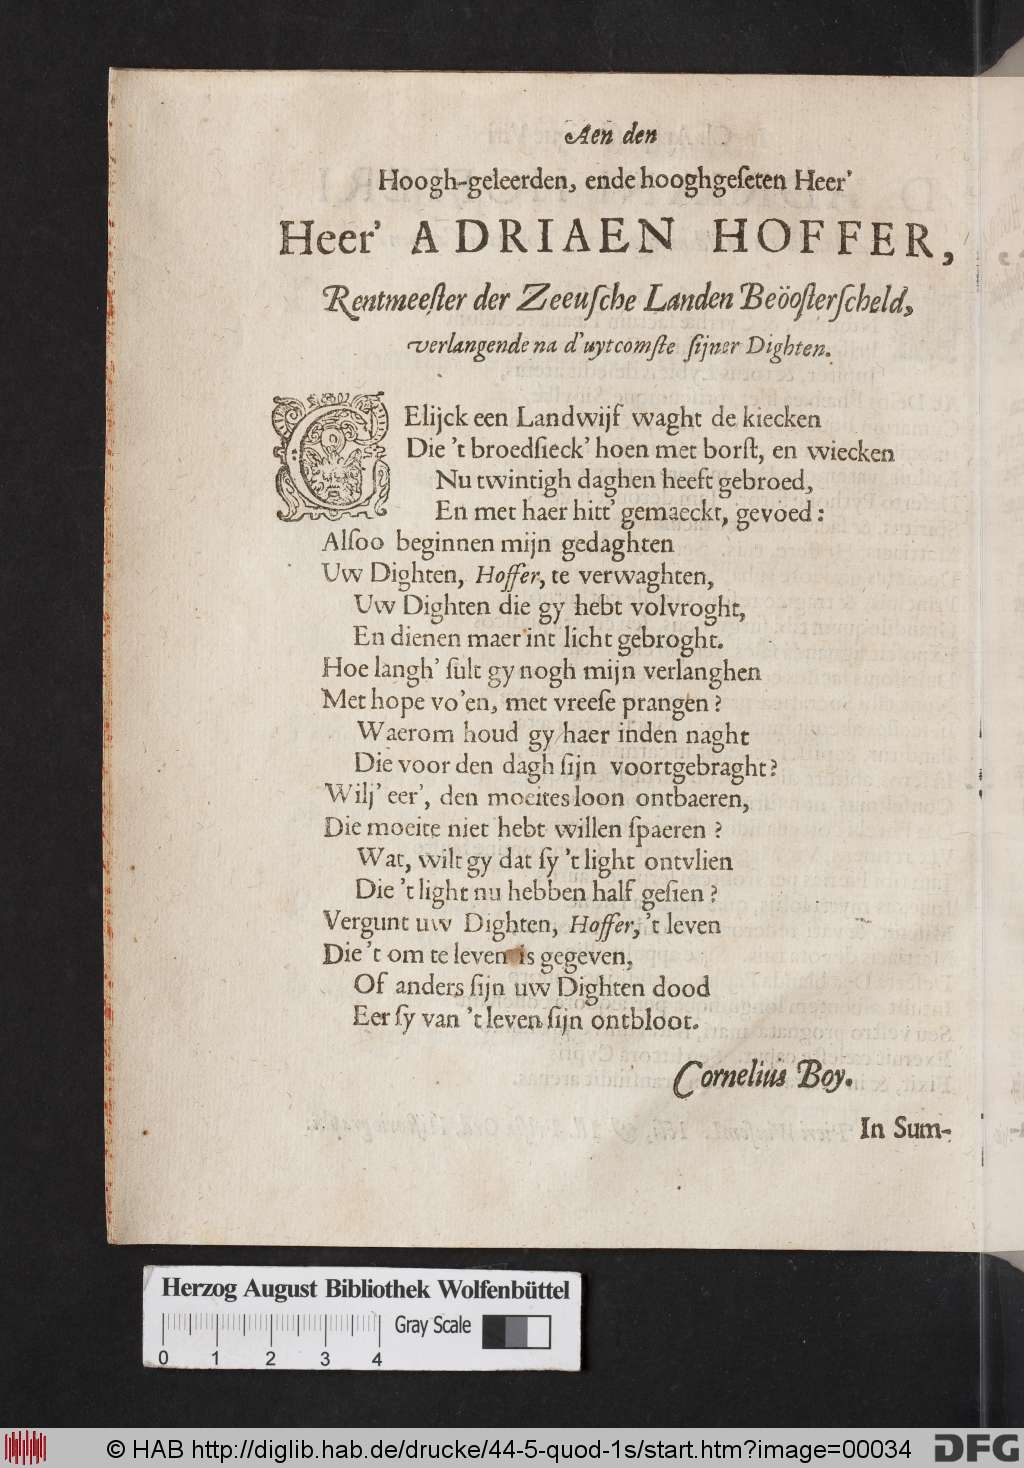 Aen den
Hoogh-geleerden, ende hooghgeſeten Heer'
Heer' ADRIAEN HOFFER,
Rentmeeſter der Zeeuſche Landen Beöoſterſcheld,
verlangende na d'uytcomſte ſijner Dighten.
GElijck een Landwijf waght de kiecken
Die 't broedſieck' hoen met borſt, en wiecken
Nu twintigh daghen heeft gebroed,
En met haer hitt' gemaeckt, gevoed:
Alſoo beginnen mijn gedaghten
Uw Dighten, Hoffer, te verwaghten,
Uw Dighten die gy hebt volvroght,
En dienen maer int licht gebroght.
Hoe langh' ſult gy nogh mijn verlanghen
Met hope vo'en, met vreeſe prangen?
Waerom houd gy haer inden naght
Die voor den dagh ſijn voortgebraght?
Wilj' eer', den moeites loon ontbaeren,
Die moeite niet hebt willen ſpaeren?
Wat, wilt gy dat ſy 't light ontvlien
Die 't light nu hebben half geſien?
Vergunt uw Dighten, Hoffer, 't leven
Die 't om te leven is gegeven,
Of anders ſijn uw Dighten dood
Eer ſy van 't leven ſijn ontbloot.
Cornelius Boy.
In Sum-
Herzog August Bibliothek Wolfenbüttel
Gray Scale
0 1 2 3 4
© HAB http://diglib.hab.de/drucke/44-5-quod-1s/start.htm?image=00034
DFG